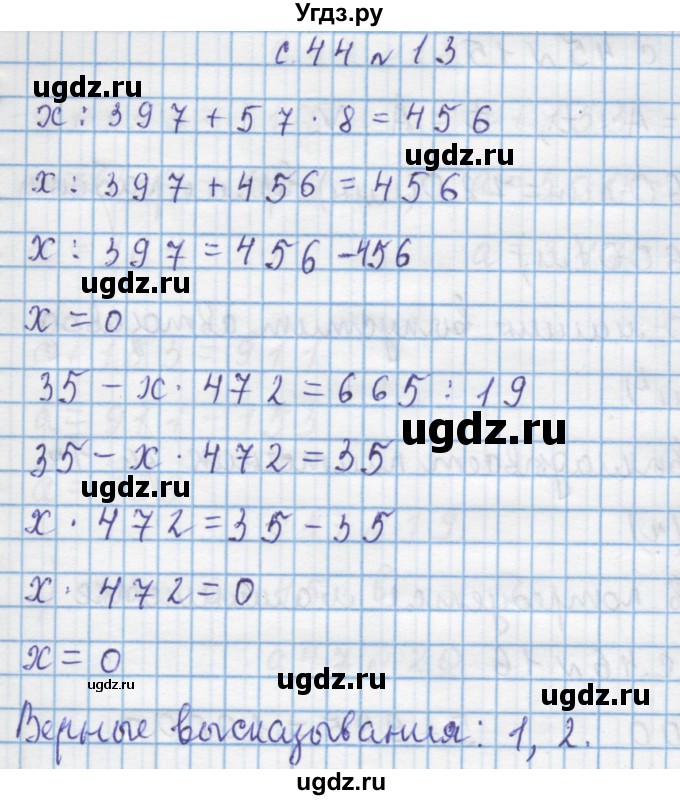 Угдз.ру
с. 44 № 13
ugdz.ru
x : 397 + 57 · 8 = 456
ugdz.ru
x : 397 + 456 = 456
x : 397 = 456 - 456
ugdz.ru
x = 0
35 - x · 472 = 665 : 19
ugdz.ru
35 - x · 472 = 35
ugdz.ru
x · 472 = 35 - 35
x · 472 = 0
x = 0
ugdz.ru
ugdz.ru
Верные высказывания: 1, 2.
ugdz.ru